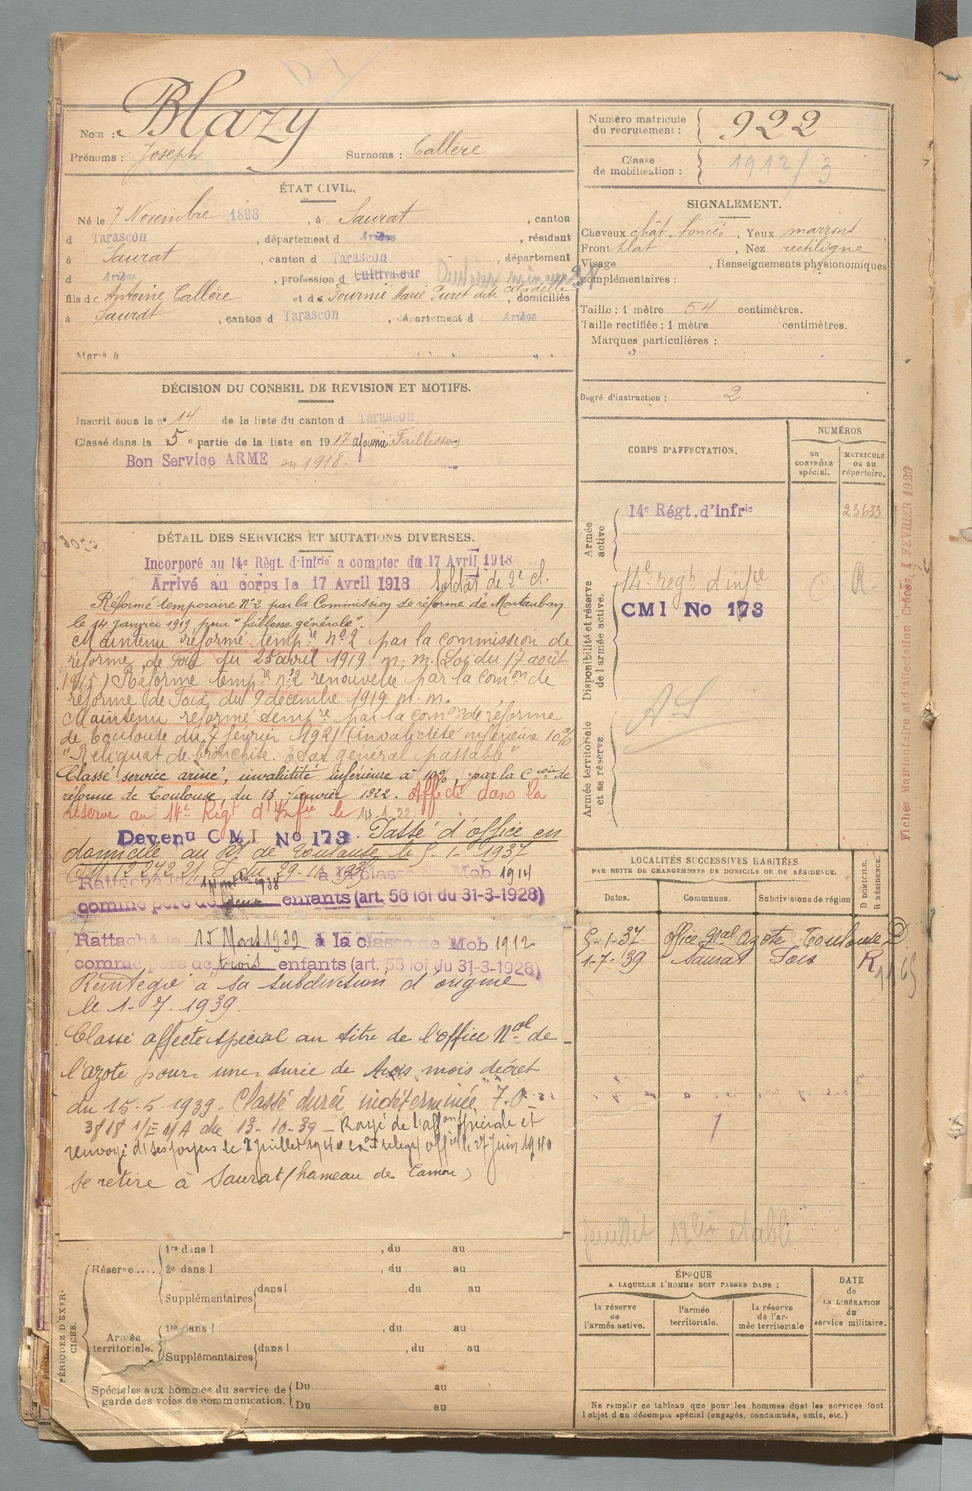 Nom : Blazy
Prénoms : Joseph Surnoms : Callère
Numéro matricule du recrutement : 922
Classe de mobilisation : 1912/3
ÉTAT CIVIL.
Né le 7 Novembre 1898, à Saurat, canton
d Tarascon, département d Ariège, résidant
à Saurat, canton d Tarascon, département
d Ariège, profession de Cultivateur
fils de Antoine Callère et de Fournié Marie, domiciliés
à Saurat, canton d Tarascon, département d Ariège
Marié à
SIGNALEMENT.
Cheveux chât. foncés, Yeux marrons
Front plat, Nez rectiligne
Visage, Renseignements physionomiques
complémentaires :
Taille : 1 mètre 54 centimètres.
Taille rectifiée : 1 mètre centimètres.
Marques particulières :
Degré d'instruction : 2
DÉCISION DU CONSEIL DE REVISION ET MOTIFS.
Inscrit sous le n° 14 de la liste du canton d Tarascon
Classé dans la 5e partie de la liste en 1917 ajourné Faiblesse
Bon Service ARMÉ en 1918.
DÉTAIL DES SERVICES ET MUTATIONS DIVERSES.
Incorporé au 14e Régt. d'infrie a compter du 17 Avril 1918
Arrivé au corps le 17 Avril 1918 Soldat de 2e cl.
Réformé temporaire n°2 par la Commission de réforme de Montauban
le 14 janvier 1919 pour "faiblesse générale".
Maintenu réformé tempre n°2 par la commission de
réforme de Foix du 28 avril 1919 m. m. (Loi du 17 août
1915) Réforme tempre n°2 renouvelée par la comon de
réforme de Foix du 9 décembre 1919 m. m.
Maintenu réformé tempre par la comon de réforme
de Toulouse du 7 février 1921 (invalidité inférieure 10%
"Reliquat de bronchite. Etat général passable"
Classé service armé, invalidité inférieure à 10%, par la Cion de
réforme de Toulouse, du 13 janvier 1922. Affecté dans la
réserve au 14e Régt d'Infie le
Devenu C M I No 173. Passé d'office en
domicile au Rt de Toulouse le 5-1-1937
Rattaché le 1938 à la classe de Mob 1914
comme père de deux enfants (art. 58 loi du 31-3-1928)
Rattaché le 15 Mars 1939 à la classe de Mob 1912
comme père de trois enfants (art. 58 loi du 31-3-1928)
Réintégré à sa subdivision d'origine
le 1-7-1939.
Classé affecté spécial au titre de l'office Nal de
l'azote pour une durée de trois mois décret
du 15-5-1939 - Classé durée indéterminée F.O.
3818 1/E M A du 13-10-39 - Rayé de l'affon spéciale et
renvoyé ds ses foyers le 2 juillet 1940 27 juin 1940
se retire à Saurat (hameau de Camou)
CORPS D'AFFECTATION.
NUMÉROS
au contrôle spécial.
matricule ou au répertoire.
Armée active
14e Régt. d'infrie 23633
Disponibilité et réserve de l'armée active.
14e régt d'infie R
CMI No 173
Armée territoriale et sa réserve.
A.S
Fiches Matriculaire et d'affectation créées, 1 FÉVRIER 1929
LOCALITÉS SUCCESSIVES HABITÉES
PAR SUITE DE CHANGEMENTS DE DOMICILE OU DE RÉSIDENCE.
Dates. Communes. Subdivisions de région D DOMICILE. R RÉSIDENCE.
5-1-37 Office Nal Azote Toulouse D
1-7-39 Saurat Foix R
ÉPOQUE
A LAQUELLE L'HOMME DOIT PASSER DANS :
la réserve de l'armée active.
l'armée territoriale.
la réserve de l'armée territoriale
DATE de LA LIBÉRATION du service militaire.
Ne remplir ce tableau que pour les hommes dont les services font
l'objet d'un décompte spécial (engagés, condamnés, omis, etc.)
PÉRIODES D'EXERCICES.
Réserve....
1re dans l , du au
2e dans l , du au
Supplémentaires dans l du au
Armée territoriale.
1re dans l , du au
Supplémentaires dans l , du au
Spéciales aux hommes du service de garde des voies de communication.
Du au
Du au